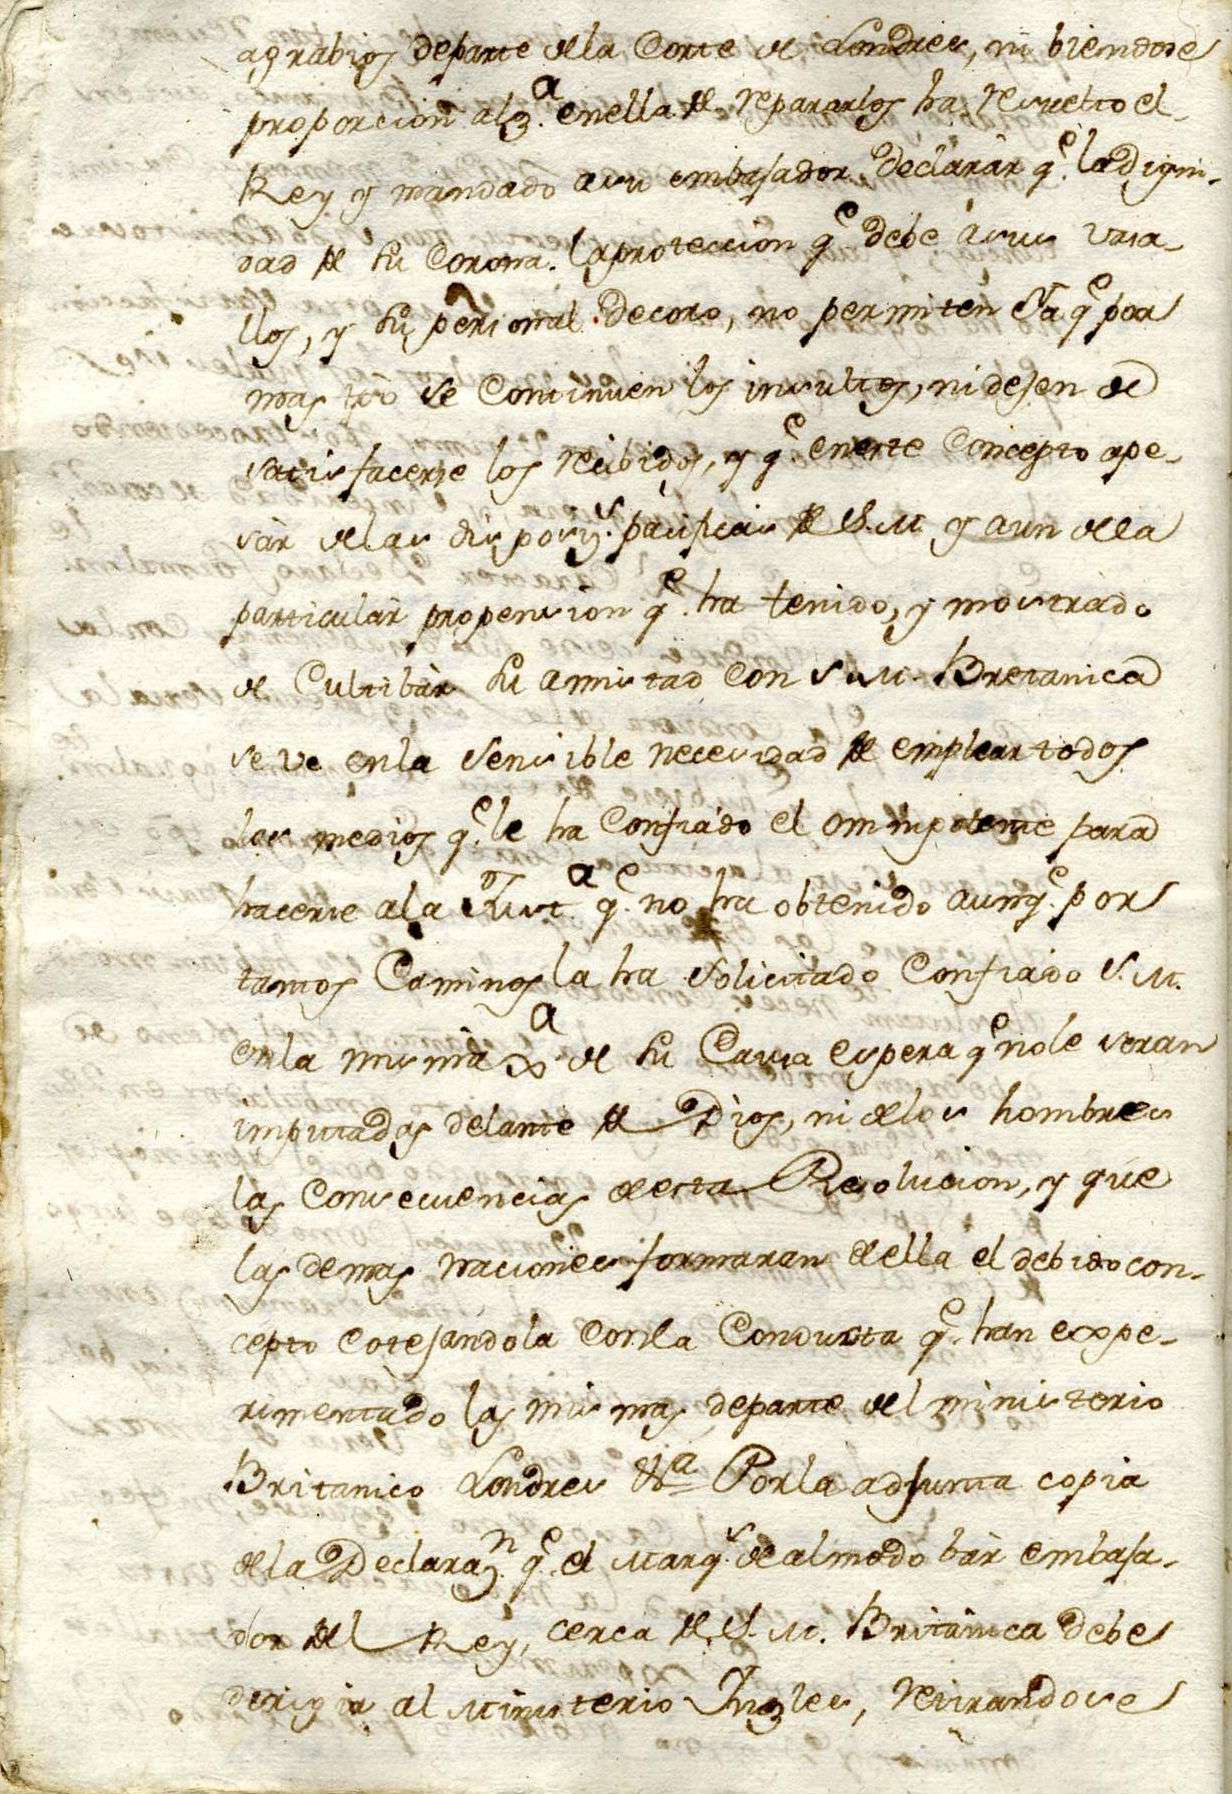 agrabios departe dela Corte de Londres, ni biendose
proporcion alg.ª enella de repararlos ha resuelto el
Rey y mandado asu embajador, declarar q.e la digni-
dad de su Corona. la proteccion q.e debe asus vasa-
llos, y su personal decoro, no permiten Ya q.e por
mas tpo se continuen los insultos, ni dejen de
satisfacerse los recibidos, y q.e eneste Concepto ape-
sar delas disposiz.s pacificas de S.M y aun dela
particular propension q.e ha tenido, y mostrado
de Cultibar su amistad con S.M. Bretanica
se ve enla sensible necesidad de emplear todos
los medios q.e le ha Confiado el Omnipotente para
hacerse ala Just.ª q.e no ha obtenido aunq.e por
tantos Caminos la ha solicitado Confiado S.M.
enla misma X.ª de su Causa espera q.e nole seran
imputadas delante de Dios, ni delos hombres
las Consecuencias desta Resolucion, y que
las demas naciones formaran della el debido con-
cepto cotejandola Conla Conducta q.e han expe-
rimentado las mismas departe del ministerio
Britanico Londres &.ª Porla adjunta copia
dela Declaraz.n q.e el Marq.s de almodobar embaja-
dor del Rey, cerca de S.M. Britanica debe
dirigir al Ministerio Ingles, retirandose